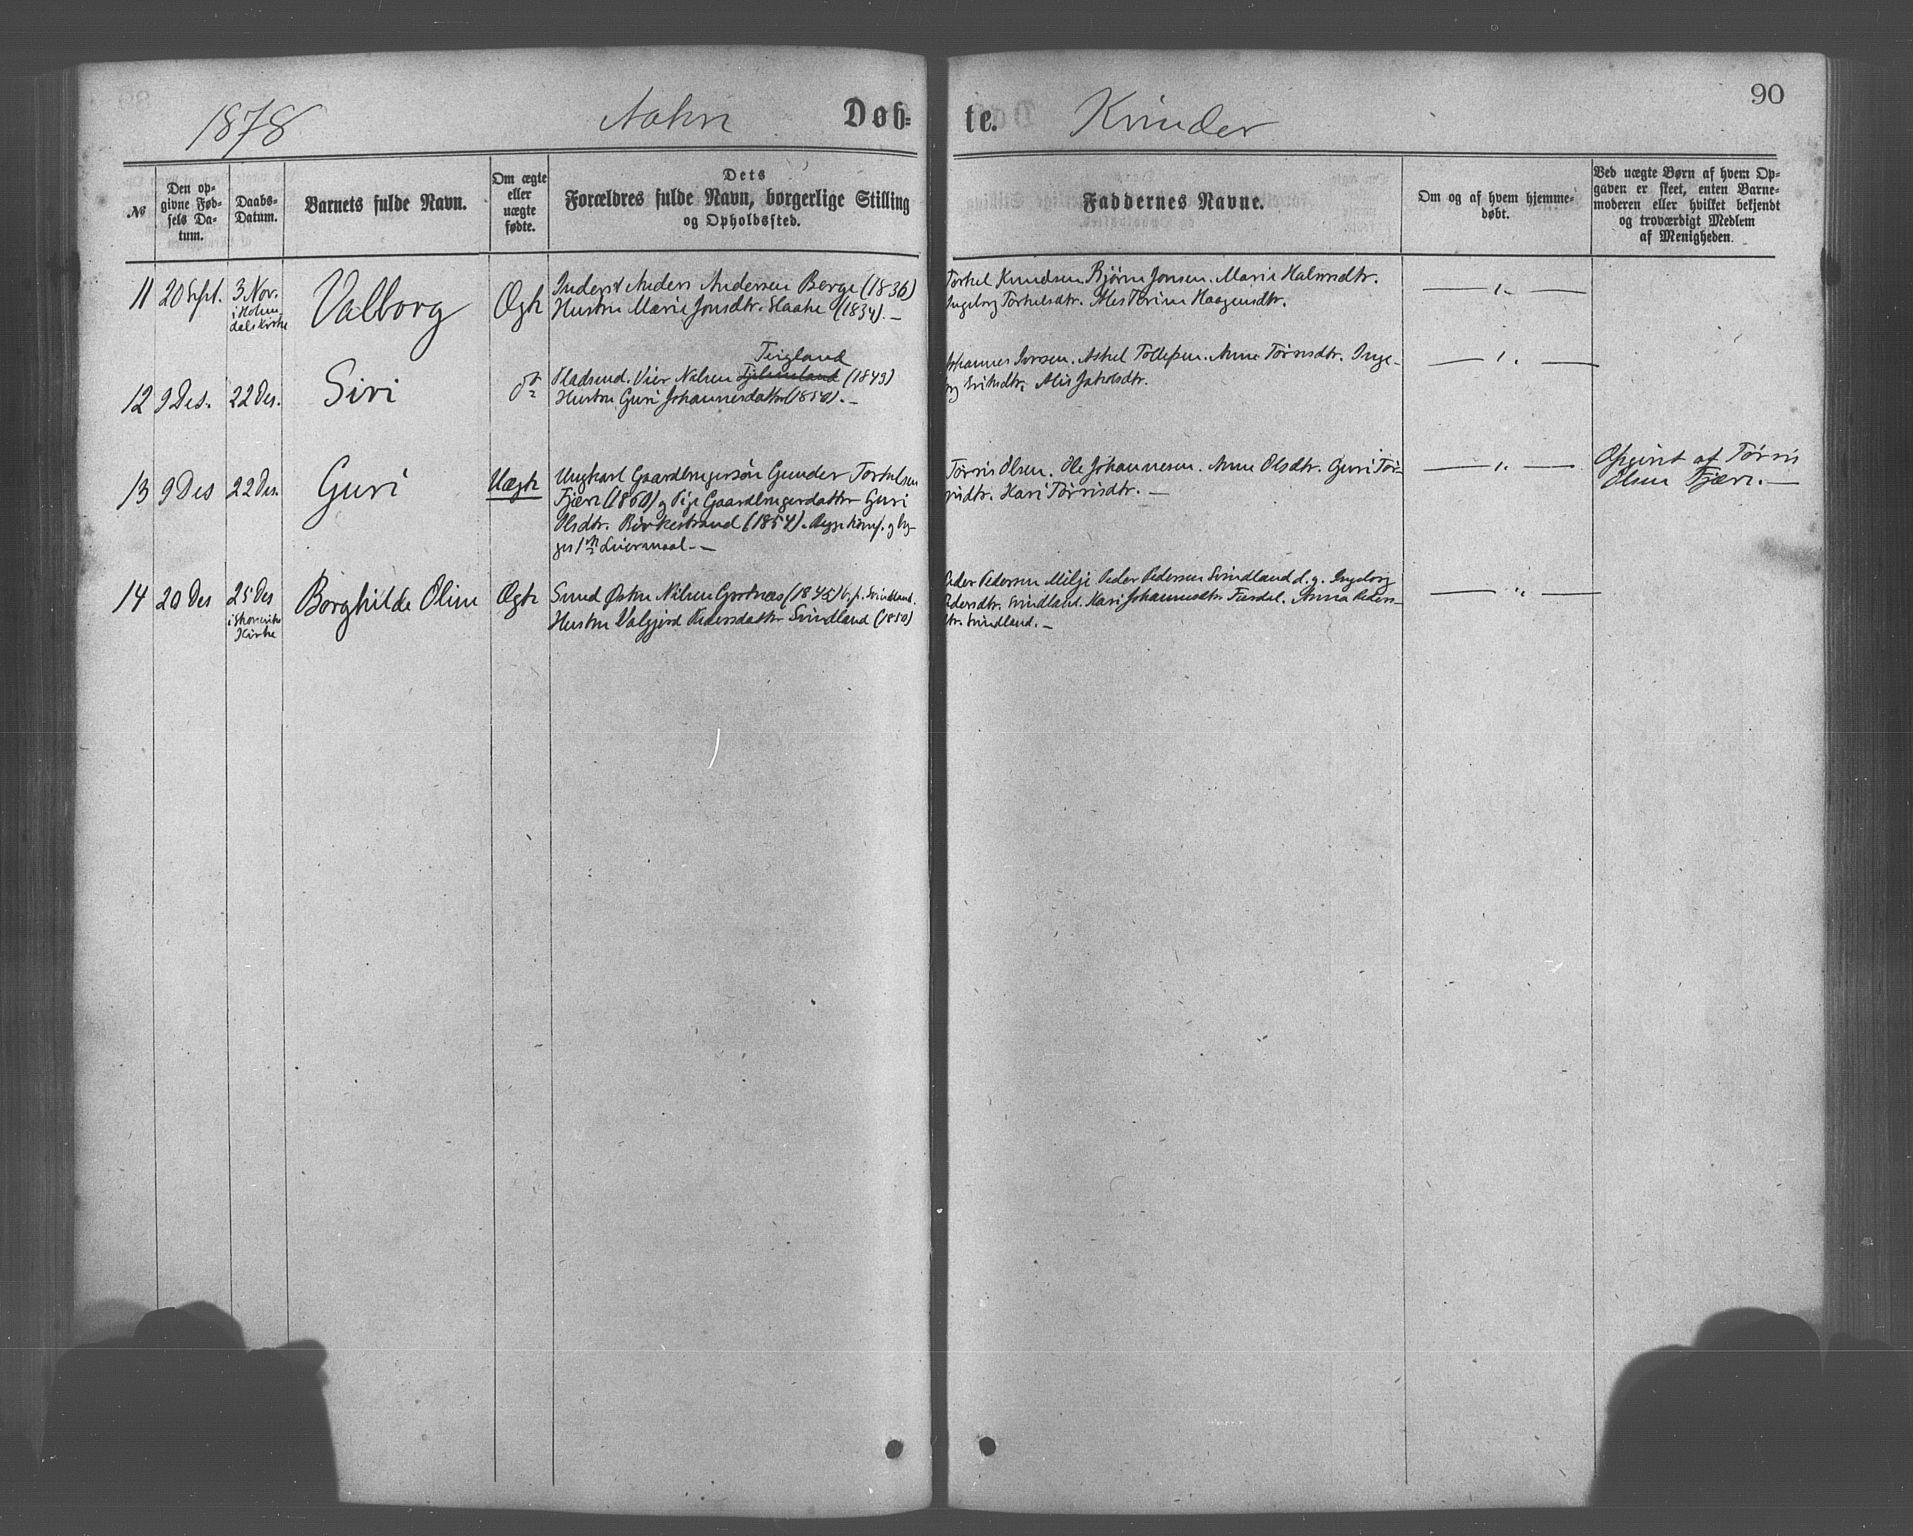 1878
Døb-
te.
Kvinder
90
№
Den op-
givne Fød-
sels Da-
tum.
Daabs-
Datum.
Barnets fulde Navn.
Om ægte
eller
uægte
fødte.
Dets
Forældres fulde Navn, borgerlige Stilling
og Opholdssted.
Faddernes Navne.
Om og af hvem hjemme-
døbt.
Ved uægte Børn af hvem Op-
gaven er skeet, enten Barne-
moderen eller hvilket bekjendt
og troværdigt Medlem
af Menigheden.
11
20 Sept.
3 Nov.
i Holm-
dals Kirke
Valborg
Ægte
Inderst Anders Andersen Berge (1836)
Hustru Marie Jonsdtr. (1834). —
Torkel Knudsen Bjørn Jonsen. Marie Halvorsdtr.
Ingeborg Torkelsdtr. Haagensdtr.
— „ —
12
9 Des.
22 Des.
Siri
do
Teigland
Pladsmd. Nilsen (1849)
Hustru Guri Johannesdatter —
Johannes Iversen. Askel Tollefsen. Anne Tørrisdtr. Inge-
borg Eriksdtr. Alis Jakobsdtr.
— „ —
13
9 Des
22 Des.
Guri
Uægte
Ungkarl Gaardbrugersøn Gunder Torkelsen
Fjære (1850) og Pige Gaardbrugerdatter Guri
Olsdtr. Birkestrand (1854). Begge Konf. og be-
gges 1ste Leiermaal. —
Tørris Olsen. Ole Johannesen. Anne Olsdtr. Guri Tør-
risdtr. Kari Tørrisdtr. —
— „ —
Opgivet af Tørris
Olsen Fjære. —
14
20 Des
25 Des
Kirke
Borghilde Oline
Ægte
Nilsen Svindland.
Hustru Valgjerd Pedersdatter Svindland (1850)
Peder Pedersen Milje Peder Pedersen Svindland d. y. Ingeborg
Pedersdtr. Svindland. Kari Johannesdtr. Anna Peders-
dtr. Svindland. —
— „ —